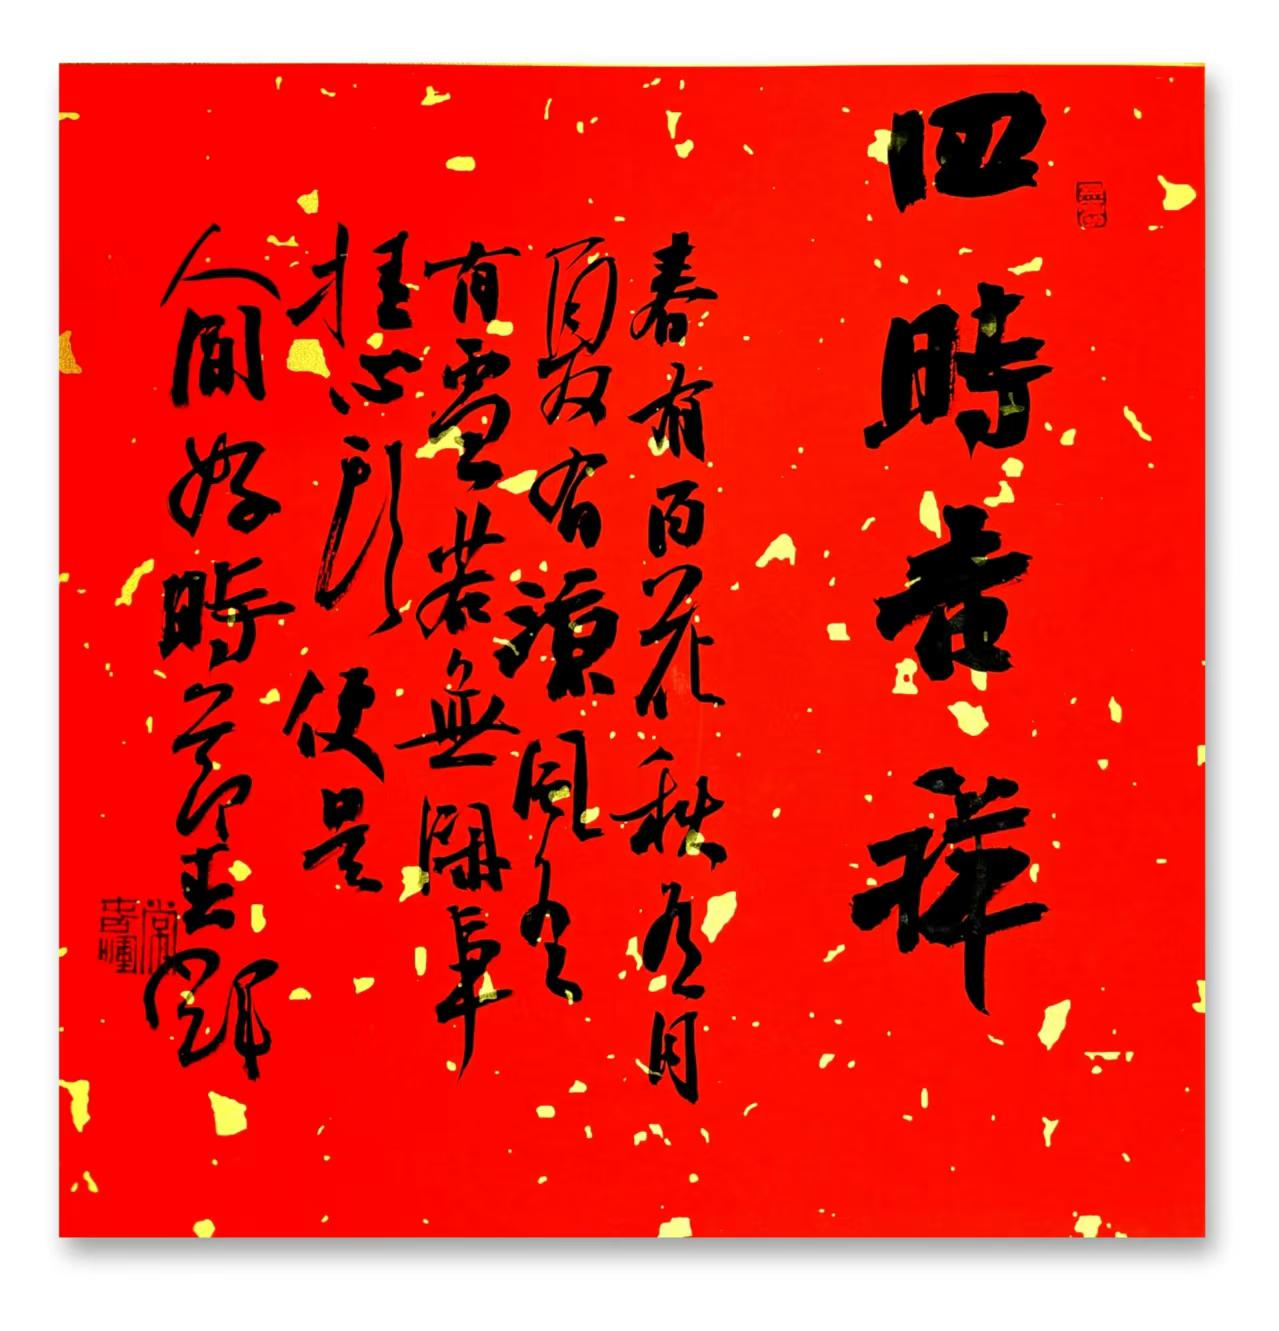 四時吉祥
春有百花秋有月
夏有凉風冬
有雪若無閑事
挂心頭便是
人間好時節